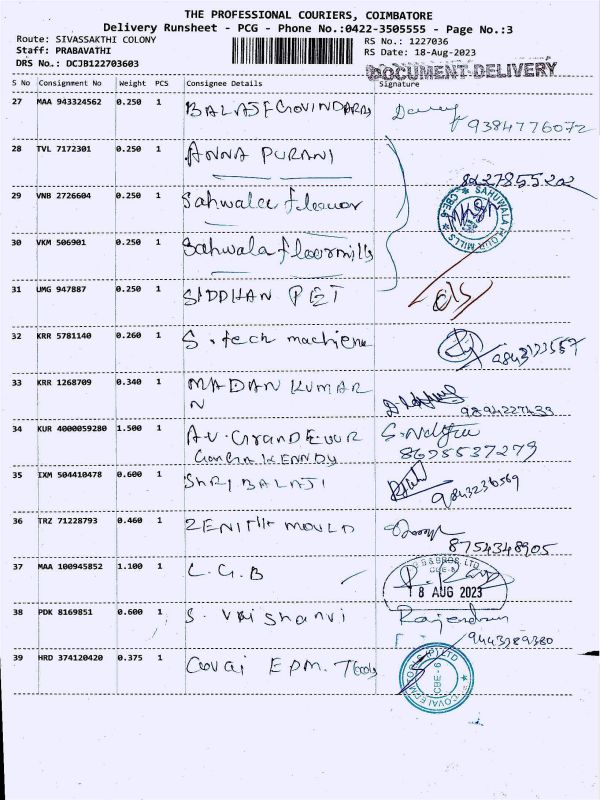 THE PROFESSIONAL COURIERS, COIMBATORE
Delivery Runsheet - PCG - Phone No.:0422-3505555 - Page No.:3
Route: SIVASSAKTHI COLONY RS No.: 1227036
Staff: PRABAVATHI RS Date: 18-Aug-2023
DRS No.: DCJB122703603 DOCUMENT DELIVERY
S No Consignment No Weight PCS Consignee Details Signature
27 MAA 943324562 0.250 1 BALAJI GOVINDARAJ
9384776072
28 TVL 7172301 0.250 1 ANNA PURANI
29 VNB 2726604 0.250 1 Sahwala
SAHUWALA FLOUR MILLS CBE-6
30 VKM 506901 0.250 1 Sahwala floormills
31 UMG 947887 0.250 1 SIDDHAN PET
32 KRR 5781140 0.260 1 S. tech
33 KRR 1268709 0.340 1 MADAN KUMAR
N
9894227433
34 KUR 4000059280 1.500 1
KENNDY 8675537279
35 IXM 504410478 0.600 1 SHRI BALAJI
9843236569
36 TRZ 71228793 0.460 1 ZENITH MOULD
8754348905
37 MAA 100945852 1.100 1 C.G.B
18 AUG 2023
38 PDK 8169851 0.600 1 S. Vaishanvi Rajendran
9443989380
39 HRD 374120420 0.375 1 Covai EPM. Tools
CBE-6